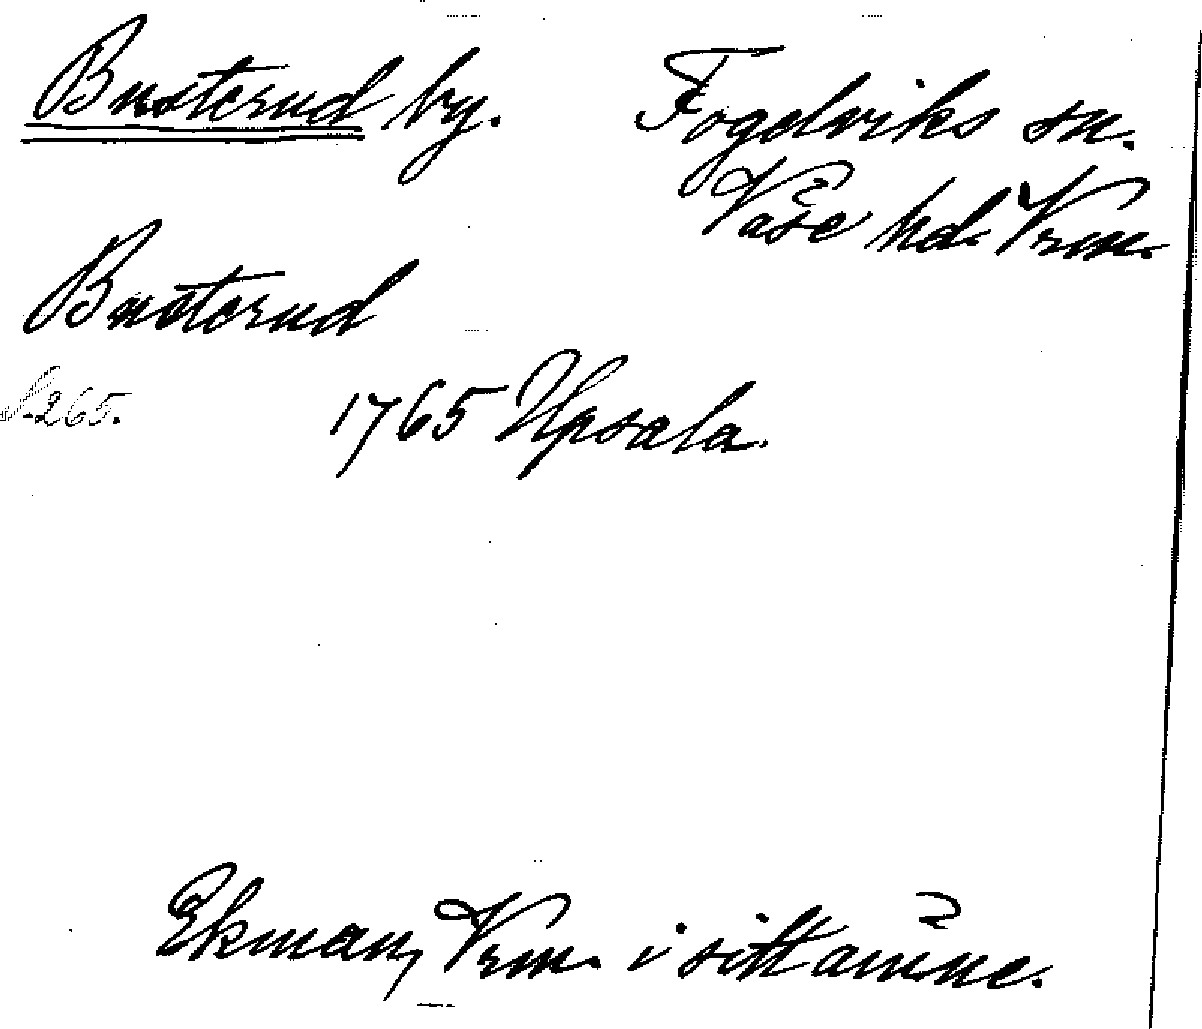 Busterud by. Fogelviks sn.
Väse hd. Vrm.
Busterud
S. 265. 1765 Upsala.
Ekman, Vrm. i sitt ämne.